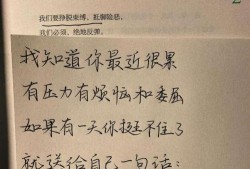 我们要挣脱束缚，抵御险恶。
我们必须，绝地反弹。
我知道你最近很累
有压力有烦恼和委屈
如果有一天你挺不住了
就送给自己一句话：